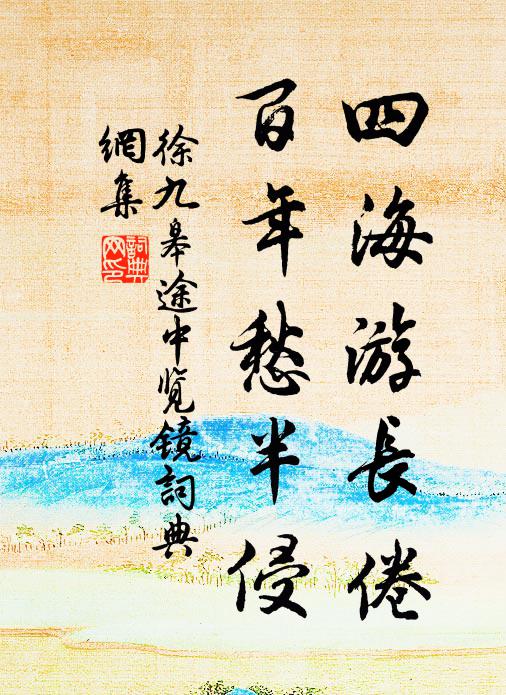 四海游長倦
百年愁半侵
徐九皋途中览鏡詞典
網集
詞典
网印